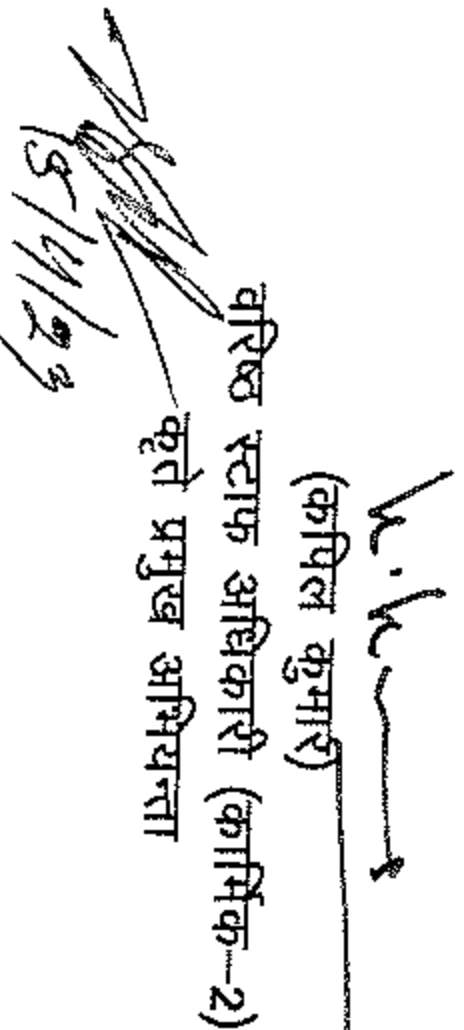 (कपिल कुमार)
वरिष्ठ स्टाफ अधिकारी (कार्मिक-2)
कृते प्रमुख अभियन्ता
5/4/23